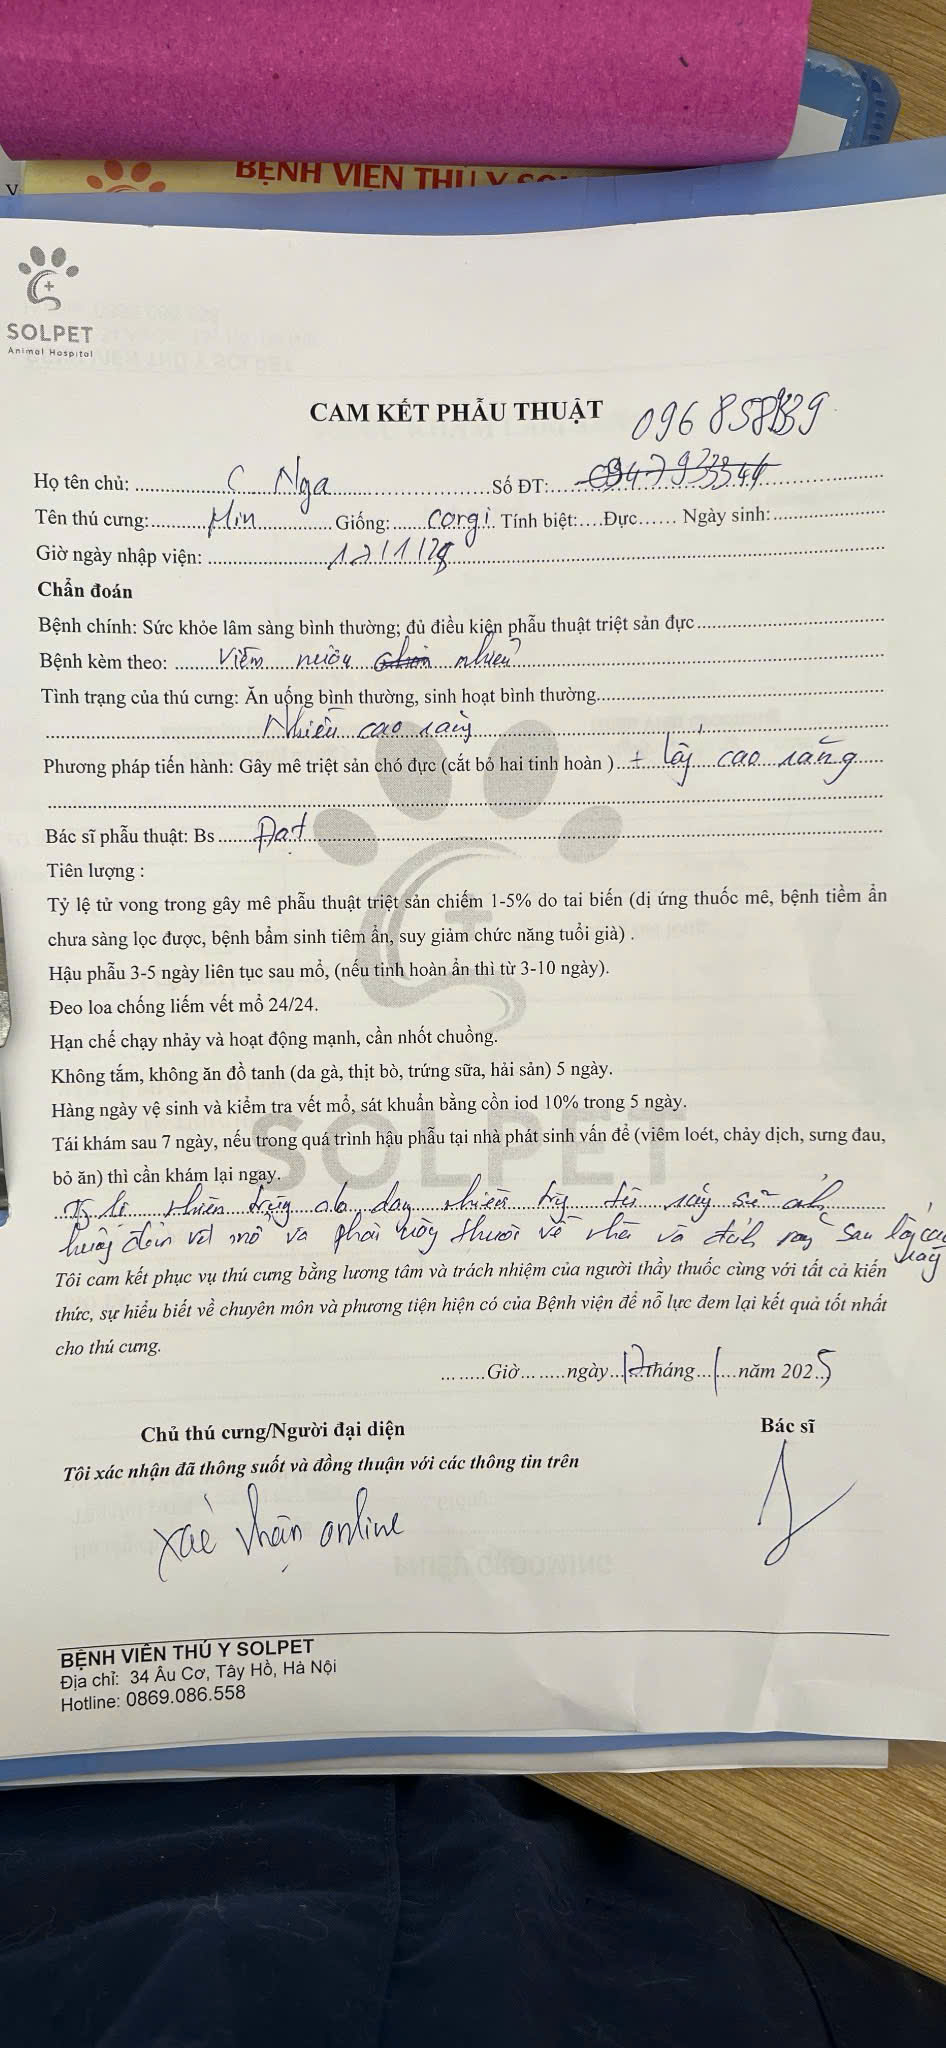 BỆNH VIỆN THÚ Y
SOLPET
Animal Hospital
CAM KẾT PHẪU THUẬT
Họ tên chủ: C Nga Số ĐT: 0947933344
Tên thú cưng: Min Giống: corgi Tính biệt: Đực Ngày sinh:
Giờ ngày nhập viện:
Chẩn đoán
Bệnh chính: Sức khỏe lâm sàng bình thường; đủ điều kiện phẫu thuật triệt sản đực
Bệnh kèm theo: Viêm nhiều
Tình trạng của thú cưng: Ăn uống bình thường, sinh hoạt bình thường
Nhiều cao răng
Phương pháp tiến hành: Gây mê triệt sản chó đực (cắt bỏ hai tinh hoàn ) + lấy cao răng
Bác sĩ phẫu thuật: Bs Đạt
Tiên lượng :
Tỷ lệ tử vong trong gây mê phẫu thuật triệt sản chiếm 1-5% do tai biến (dị ứng thuốc mê, bệnh tiềm ẩn
chưa sàng lọc được, bệnh bẩm sinh tiêm ẩn, suy giảm chức năng tuổi già) .
Hậu phẫu 3-5 ngày liên tục sau mổ, (nếu tinh hoàn ẩn thì từ 3-10 ngày).
Đeo loa chống liếm vết mổ 24/24.
Hạn chế chạy nhảy và hoạt động mạnh, cần nhốt chuồng.
Không tắm, không ăn đồ tanh (da gà, thịt bò, trứng sữa, hải sản) 5 ngày.
Hàng ngày vệ sinh và kiểm tra vết mổ, sát khuẩn bằng cồn iod 10% trong 5 ngày.
Tái khám sau 7 ngày, nếu trong quá trình hậu phẫu tại nhà phát sinh vấn đề (viêm loét, chảy dịch, sưng đau,
bỏ ăn) thì cần khám lại ngay.
nhiễm trùng do đang nhiều răng sẽ ảnh
hưởng đến vết mổ và phải uống thuốc về nhà và đánh răng sau lấy cao
răng
Tôi cam kết phục vụ thú cưng bằng lương tâm và trách nhiệm của người thầy thuốc cùng với tất cả kiến
thức, sự hiểu biết về chuyên môn và phương tiện hiện có của Bệnh viện để nỗ lực đem lại kết quả tốt nhất
cho thú cưng.
Giờ ngày 17 tháng 1 năm 2025
Chủ thú cưng/Người đại diện Bác sĩ
Tôi xác nhận đã thông suốt và đồng thuận với các thông tin trên
xác nhận online
SOLPET
BỆNH VIÊN THÚ Y SOLPET
Địa chỉ: 34 Âu Cơ, Tây Hồ, Hà Nội
Hotline: 0869.086.558